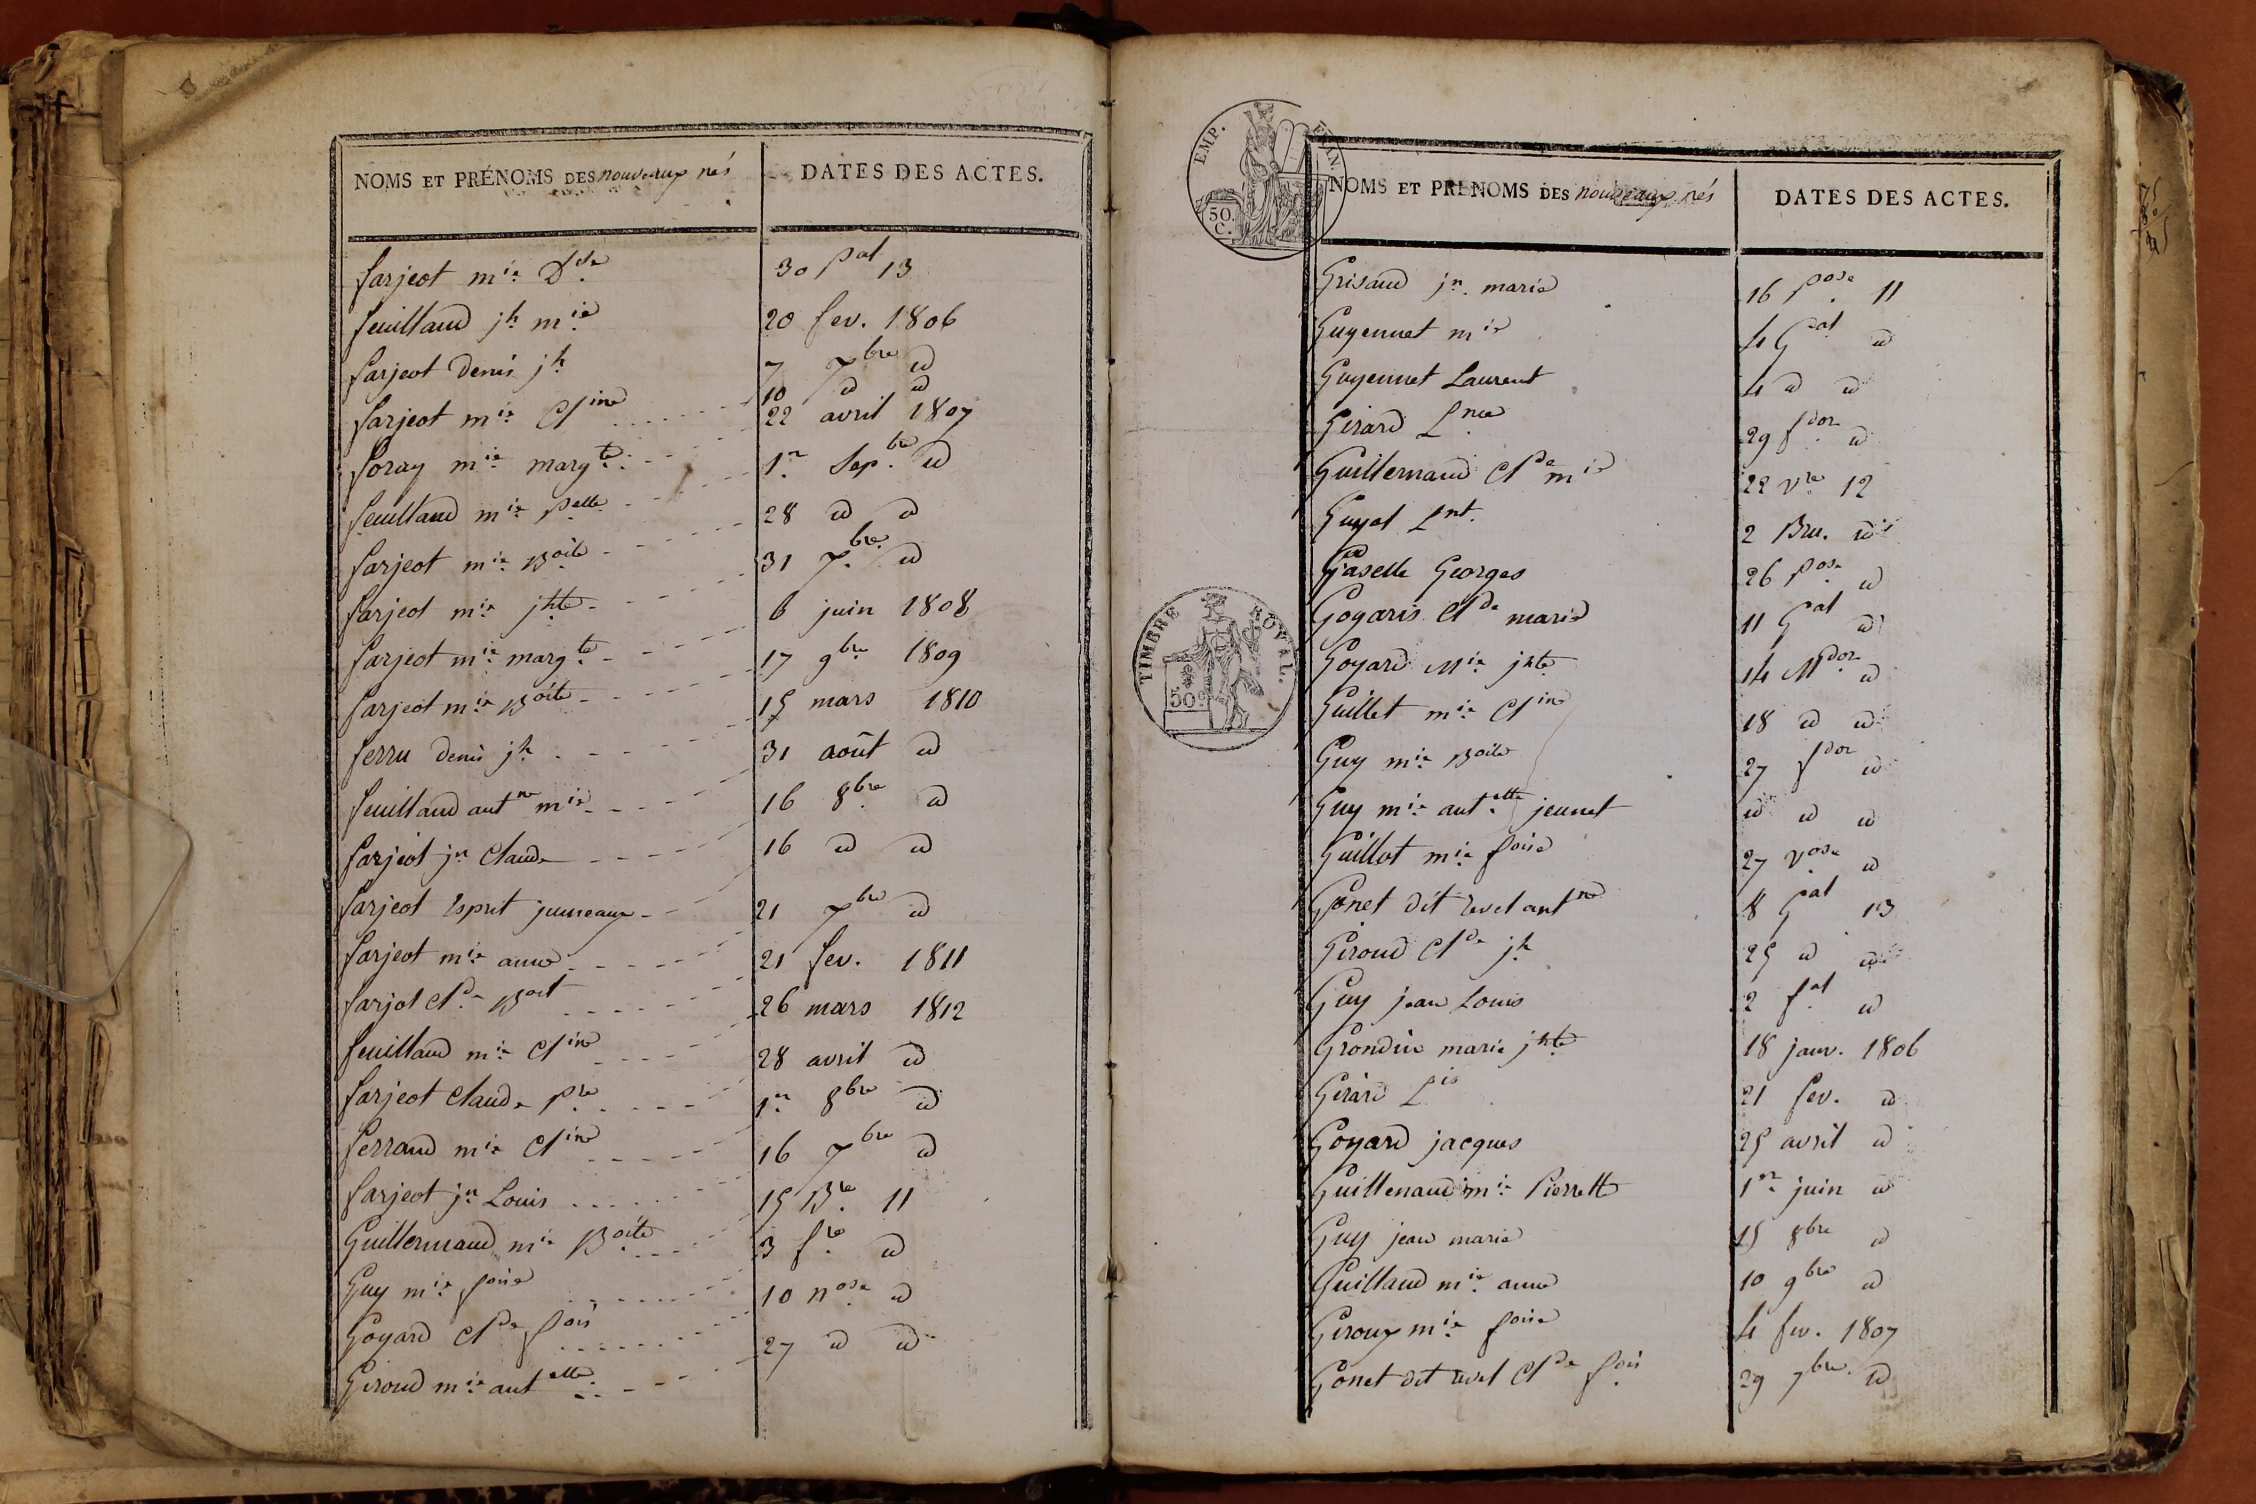 NOMS ET PRÉNOMS DES nouveaux nés DATES DES ACTES.
farjeot mie Dse 30 pal 13
feuilland jh mie 20 fev. 1806
farjeot Denis jh 7 7bre id
farjeot mie Cline 10 id id
foray mie margte 22 avril 1807
feuilland mie pelle 1er Sepbre id
farjeot mie Boite 28 id id
farjeot mie jhte 31 7bre id
farjeot mie margte 6 juin 1808
farjeot mie Boite 17 9bre 1809
ferru denis jh 15 mars 1810
feuilland antne mie 31 août id
farjeot jn Claude 16 8bre id
farjeot Esprit jumeaux 16 id id
farjeot mie anne 21 7bre id
farjot Cde Boit 21 fev. 1811
feuilland mie Cline 26 mars 1812
farjeot Claude pre 28 avril id
ferrand mie Cline 1er 8bre id
farjeot jn Louis 16 7bre id
Guillermaud mie Boite 15 Bre 11
Guy mie foise 3 fre id
Goyard Clde fois 10 nose id
Giroud mie antelle 27 id id
EMP. FRAN.
50 C.
TIMBRE ROYAL.
50c
NOMS ET PRENOMS DES nouveaux nés DATES DES ACTES.
Grisaud jn. marie 16 pose 11
Guyennet mie 4 Gal id
Guyennet Laurent 4 id id
Girard Lnce 29 fdor id
Guillermaud Clde mie 22 vre 12
Guyot Lnt. 2 Bru. id
Gaselle Georges 26 pose id
Gogaris Clde marie 11 Gal id
Goyard Mie jhte 14 Mdor id
Guillet mie Cline 18 id id
Guy mie Boite 27 fdor id
Guy mie antelle jeunet id id id
Guillot mie foise 27 vose id
Gonet dit revel antne 8 Gal 13
Giroud Clde jh 25 id id
Guy jean Louis 2 fal id
Grondin marie jhte 18 janv. 1806
Girard Lis 21 fev. id
Goyard jacques 25 avril id
Guillenaud mie Pierrette 1er juin id
Guy jean marie 15 8bre id
Guilland mie anne 10 9bre id
Giroux mie foise 4 fev. 1807
Gonet dit revel Clde fois 29 7bre id